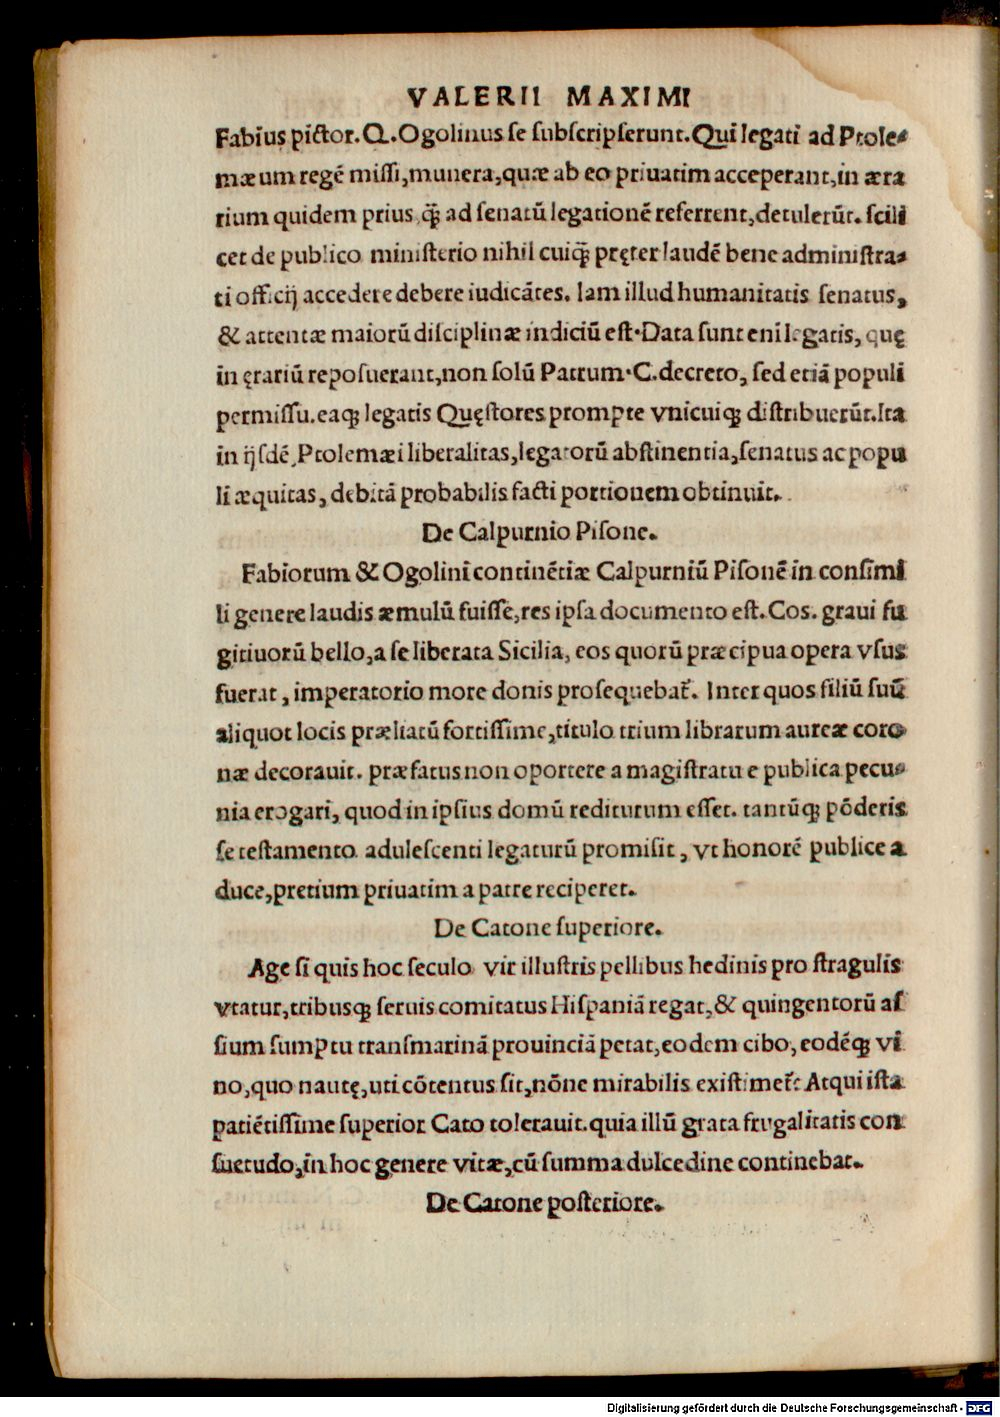 VALERII MAXIMI
Fabius pictor. Q. Ogolinus se subscripserunt. Qui legati ad Ptole-
mæum regē missi, munera, quæ ab eo priuatim acceperant, in æra
rium quidem prius q̄ ad senatū legationē referrent, detulerūt. scili
cet de publico ministerio nihil cuiq̄ pręter laudē bene administra-
ti officij accedere debere iudicātes. Iam illud humanitatis senatus,
& attentæ maiorū disciplinæ indiciū est. Data sunt enī legatis, quę
in ęrariū reposuerant, non solū Patrum. C. decreto, sed etiā populi
permissu. eaq; legatis Quęstores prompte vnicuiq; distribuerūt. Ita
in ijsdē Ptolemæi liberalitas, legatorū abstinentia, senatus ac popu
li æquitas, debitā probabilis facti portionem obtinuit.
De Calpurnio Pisone.
Fabiorum & Ogolini continētiæ Calpurniū Pisonē in consimi
li genere laudis æmulū fuisse, res ipsa documento est. Cos. graui fu
gitiuorū bello, a se liberata Sicilia, eos quorū præcipua opera vsus
fuerat, imperatorio more donis prosequebat̄. Inter quos filiū suū
aliquot locis præliatū fortissime, titulo trium librarum aureæ coro
næ decorauit. præfatus non oportere a magistratu e publica pecu-
nia erogari, quod in ipsius domū rediturum esset. tantūq; pōderis
se testamento adulescenti legaturū promisit, vt honorē publice a
duce, pretium priuatim a patre reciperet.
De Catone superiore.
Age si quis hoc seculo vir illustris pellibus hedinis pro stragulis
vtatur, tribusq; seruis comitatus Hispaniā regat, & quingentorū as
sium sumptu transmarinā prouinciā petat, eodem cibo, eodēq; vi
no, quo nautę, uti cōtentus sit, nōne mirabilis existimet̄: Atqui ista
patiētissime superior Cato tolerauit. quia illū grata frugalitatis con
suetudo, in hoc genere vitæ, cū summa dulcedine continebat.
De Catone posteriore.
Digitalisierung gefördert durch die Deutsche Forschungsgemeinschaft - DFG